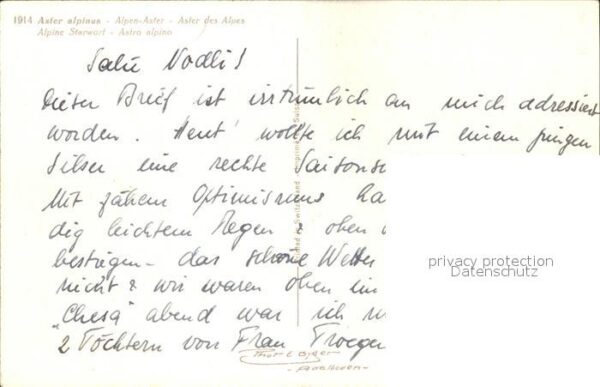 1914 Aster alpinus - Alpen-Aster - Aster des Alpes
Alpine Starwort - Astro alpino
Salü Nodli!
Dieser Brief ist irrtümlich an mich adressiert
worden. Heut' wollte ich mit einem jungen
Silser eine rechte Saisons
Mit zähem Optimismus ha
dig leichtem Regen & oben
bestiegen - das schöne Wetter
nicht & wir waren oben im
"Chesa" abend war ich
2 Töchtern von Frau Troeger
privacy protection
Datenschutz